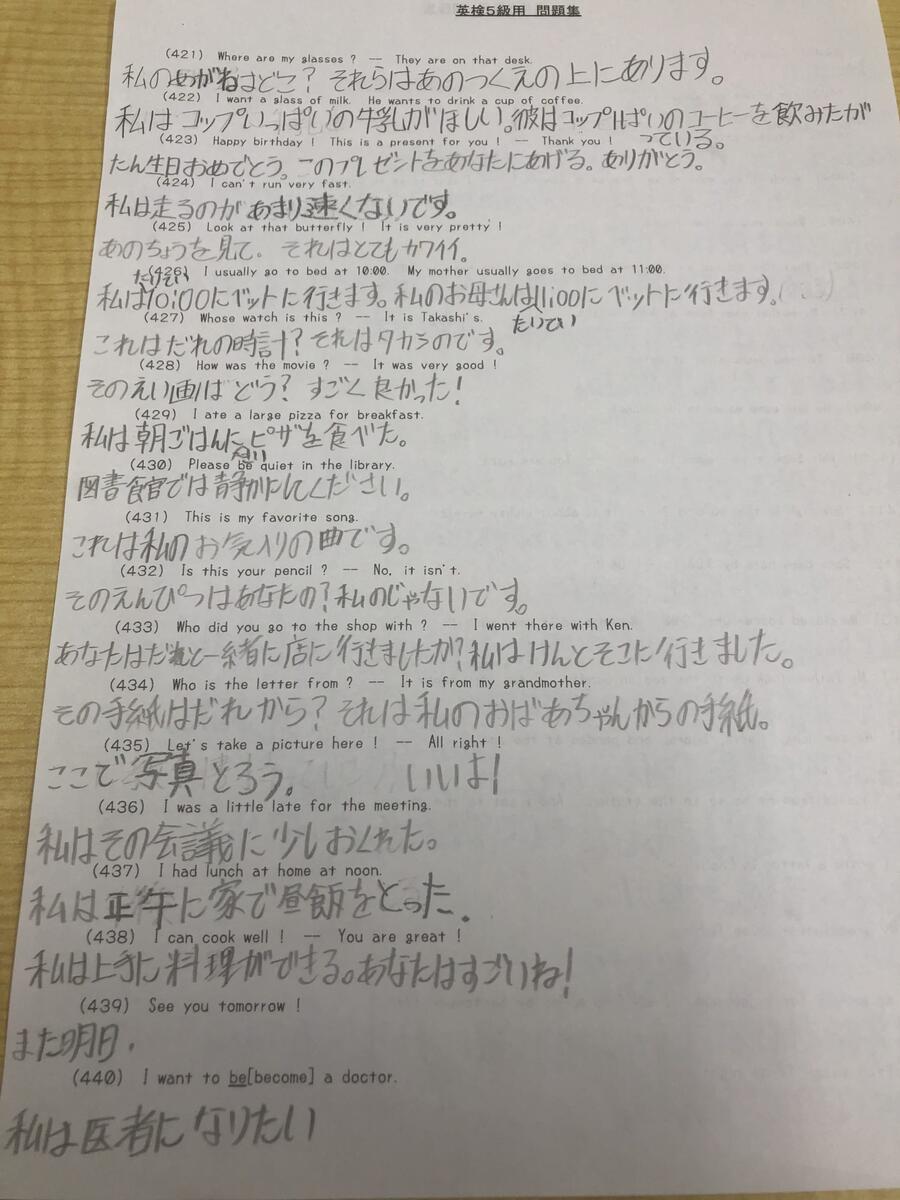 英検5級用 問題集
(421) Where are my glasses ? -- They are on that desk.
私のめがねはどこ？ それらはあのつくえの上にあります。
(422) I want a glass of milk. He wants to drink a cup of coffee.
私はコップいっぱいの牛乳がほしい。彼はコップ1ぱいのコーヒーを飲みたが
っている。
(423) Happy birthday ! This is a present for you ! -- Thank you !
たん生日おめでとう。このプレゼントをあなたにあげる。ありがとう。
(424) I can't run very fast.
私は走るのがあまり速くないです。
(425) Look at that butterfly ! It is very pretty !
あのちょうを見て。それはとてもカワイイ。
(426) I usually go to bed at 10:00. My mother usually goes to bed at 11:00.
たいてい
私は10:00にベットに行きます。私のお母さんは11:00にベットに行きます。
たいてい
(427) Whose watch is this ? -- It is Takashi's.
これはだれの時計？それはタカシのです。
(428) How was the movie ? -- It was very good !
そのえい画はどう？ すごく良かった！
(429) I ate a large pizza for breakfast.
私は朝ごはんにピザを食べた。
(430) Please be quiet in the library.
図書館では静かにしてください。
(431) This is my favorite song.
これは私のお気入りの曲です。
(432) Is this your pencil ? -- No, it isn't.
そのえんぴつはあなたの？私のじゃないです。
(433) Who did you go to the shop with ? -- I went there with Ken.
あなたはだれと一緒に店に行きましたか？私はけんとそこに行きました。
(434) Who is the letter from ? -- It is from my grandmother.
その手紙はだれから？それは私のおばあちゃんからの手紙。
(435) Let's take a picture here ! -- All right !
ここで写真とろう。 いいよ！
(436) I was a little late for the meeting.
私はその会議に少しおくれた。
(437) I had lunch at home at noon.
私は正午に家で昼飯をとった.
(438) I can cook well ! -- You are great !
私は上手に料理ができる。あなたはすごいね！
(439) See you tomorrow !
また明日.
(440) I want to be[become] a doctor.
私は医者になりたい